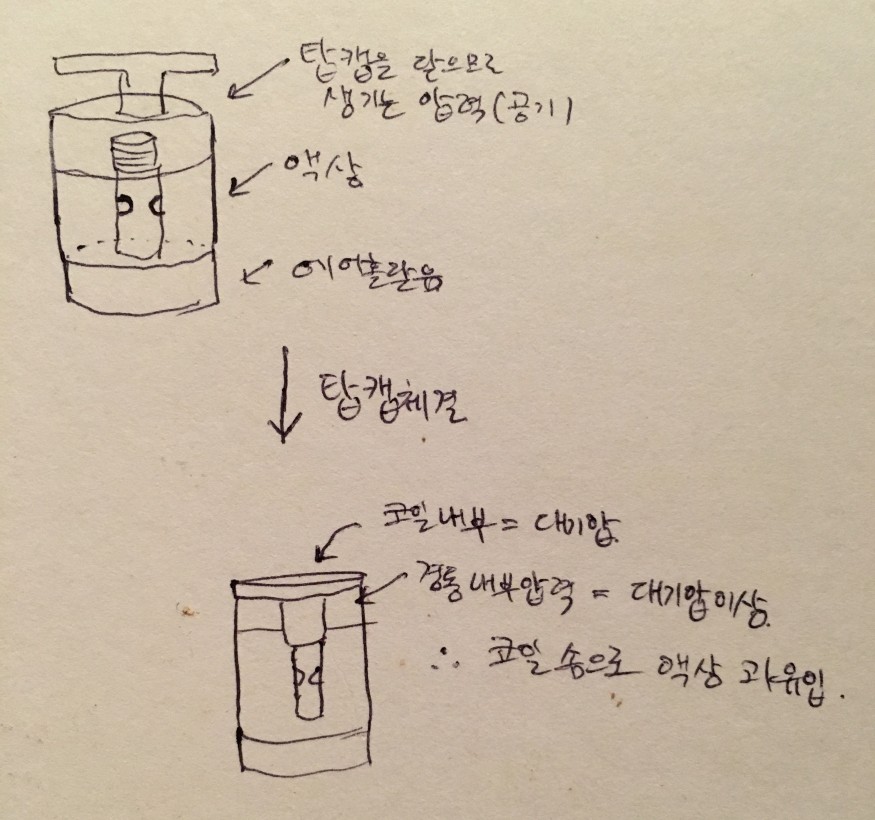 탑캡을 닫으므로
생기는 압력(공기)
액상
에어홀닫음
탑캡체결
코일내부 = 대기압
경통내부압력 = 대기압이상.
∴ 코일 솜으로 액상 과유입.